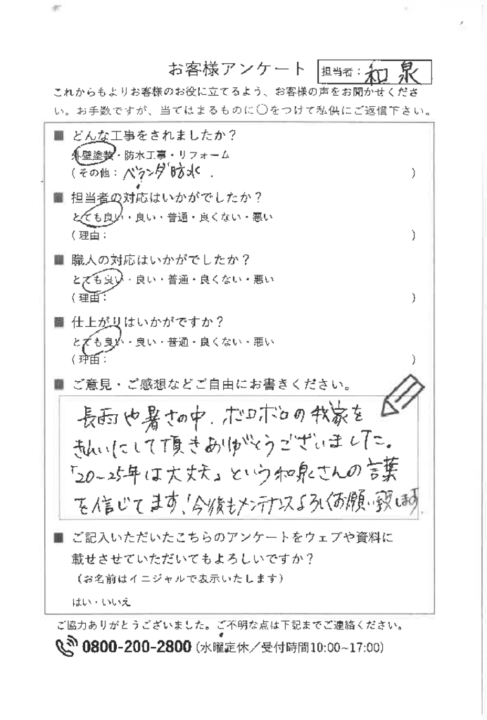 お客様アンケート 担当者: 和泉
これからもよりお客様のお役に立てるよう、お客様の声をお聞かせくださ
い。お手数ですが、当てはまるものに〇をつけて私供にご返信下さい。
■ どんな工事をされましたか？
外壁塗装・防水工事・リフォーム
(その他: ベランダ防水. )
■ 担当者の対応はいかがでしたか？
とても良い・良い・普通・良くない・悪い
(理由: )
■ 職人の対応はいかがでしたか？
とても良い・良い・普通・良くない・悪い
(理由: )
■ 仕上がりはいかがですか？
とても良い・良い・普通・良くない・悪い
(理由: )
■ ご意見・ご感想などご自由にお書きください。
長雨や暑さの中、ボロボロの我家を
きれいにして頂きありがとうございました。
「20〜25年は大丈夫」という和泉さんの言葉
を信じてます！今後もメンテナンスよろしくお願い致します.
■ ご記入いただいたこちらのアンケートをウェブや資料に
載せさせていただいてもよろしいですか？
(お名前はイニシャルで表示いたします)
はい・いいえ
ご協力ありがとうございました。ご不明な点は下記までご連絡ください。
0800-200-2800 (水曜定休／受付時間10:00~17:00)